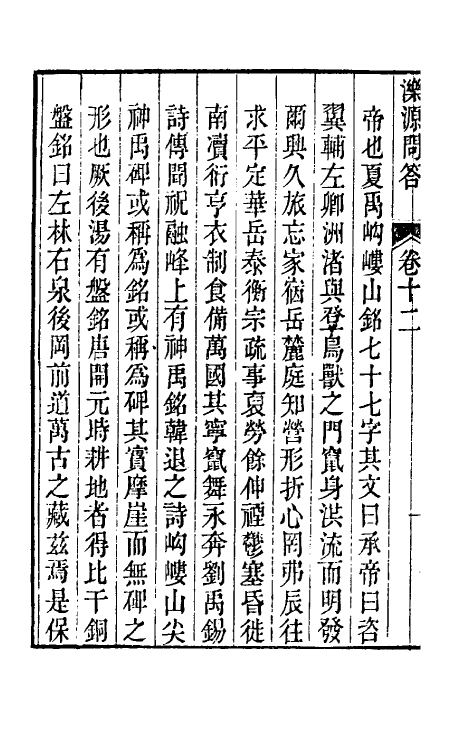 濼源問答　卷十二
帝也夏禹岣嶁山銘七十七字其文曰承帝曰咨
翼輔左卿洲渚與登鳥獸之門竄身洪流而明發
爾興久旅忘家宿岳麓庭知營形折心罔弗辰往
求平定華岳泰衡宗疏事裒勞餘伸禋鬱塞昏徙
南瀆衍亨衣制食備萬國其寧竄舞永奔劉禹錫
詩傳聞祝融峰上有神禹銘韓退之詩岣嶁山尖
神禹碑或稱為銘或稱為碑其實摩崖而無碑之
形也厥後湯有盤銘唐開元時耕地者得比干銅
盤銘曰左林右泉後岡前道萬古之藏茲焉是保